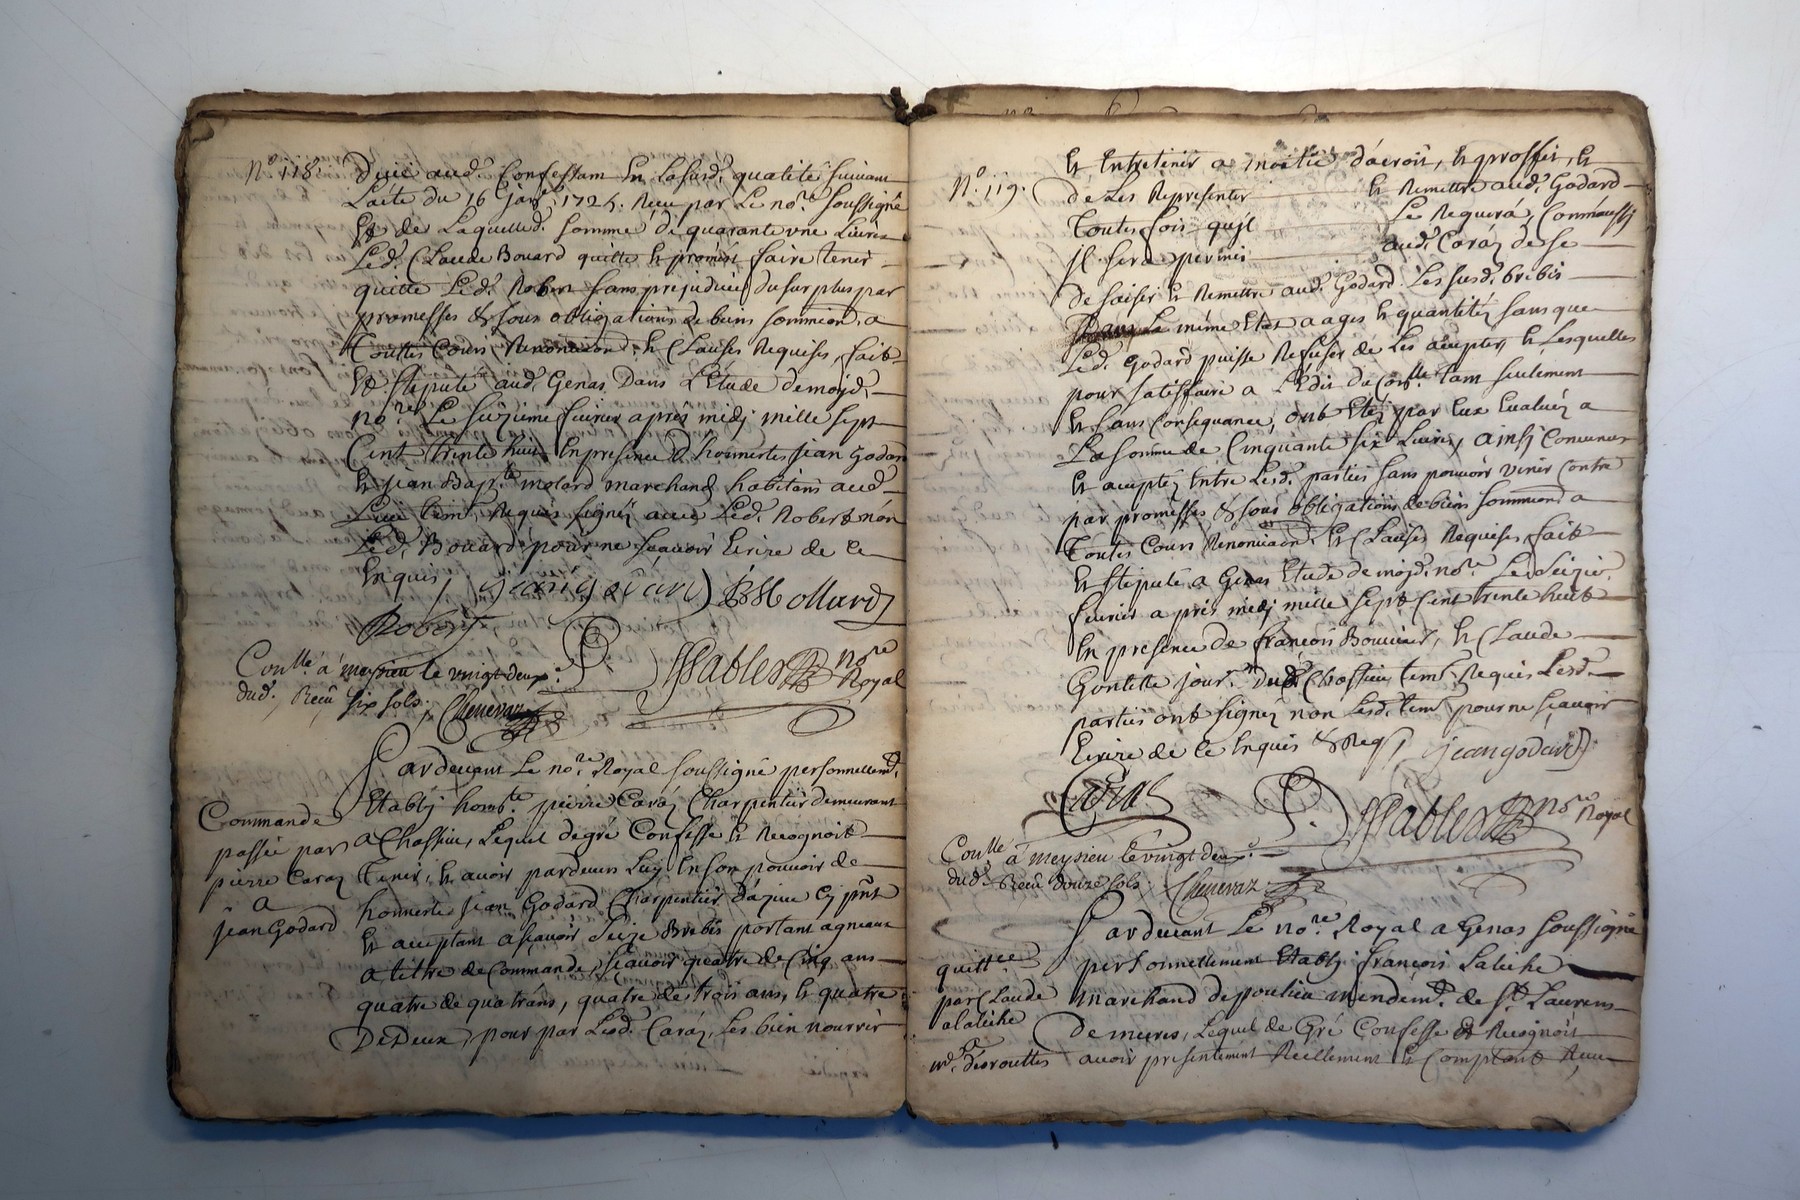 N.º 118.
Duii aud. Confessant En la susd. qualité suivant
Lacte du 16 janv. 1724. Receu par Le no.re soussigné
Et de Laquelled. somme de quarante une Livres
Led. Claude Bouard quitte Et promet faire tenir
quitte Led. Robert sans prejudice du surplus par
promesses & sous obligations de biens soumission, a
Touttes Cours Renonciaon. Et Clauses Requises, fait
Et stipulé aud. Genas Dans L'Etude de mojd.
no.re Le seizieme fevrier apres midj mille sept
Cent trente huit En presence d'honnertes jean Godard
Et jean Bap.te molard marchand habitans aud.
Lieu tem. Requis signéz avec Led. Robert non
Led. Bouard pour ne sçavoir Ecrire de Ce
Enquis, jean godard JB Mollard
Robert
P. Sablet no.re Royal
Con.llé à meysieu le vingt deux.e
dud. Reçu six sols. Chenevaz
Pardevant Le no.re Royal soussigné personnellem.t
Etablj hon.te pierre Caraz Charpentier demeurant
Commande
passée par
pierre Caraz
a
jean Godard
a Chassieu, Lequel de gré Confesse Et Recognoit
Tenir, Et avoir pardevers Luy En son pouvoir de
honnerte jean Godard Charpentier dazieu Cj pnt
Et acceptant a sçavoir Seize Brebis portant agneaux
a titre de Commande, sçavoir quatre de Cinq ans
quatre de quatr'ans, quatre de trois ans, Et quatre
De Deux, pour par Led. Caraz, Les bien nourrir
N.º 119.
Et Entretenir a moitié d'acroit, Et proffit, Et
de Les Representer Et Remettre aud. Godard
Toutes fois qujl Le Requerá, Comme aussj
jl sera permis aud. Caraz de se
de saisir Et Remettre aud. Godard Les susd. brebis
La même Etat aages Et quantitéz sans que
Led. Godard puisse Refuser de Les accepter, Et Lesquelles
pour satisfaire a L'Edit du Con.lle tant seulement
Et sans Consequance, ont Etéz par Eux Evaluéz a
La somme de Cinquante six Livres, ainsj Convenus
Et accepté Entre Lesd. parties sans pouvoir venir Contre
par promesses & sous obligations de biens soumissions a
Toutes Cours Renonciaon. Et Clauses Requises, fait
Et stipulé a Genas Etude de mojd. no.re Le Seizie.
fevrier a pres midj mille sept Cent trente huit
En presence de françois Bouvier, Et Claude
Gontelle jour.r Dud. Chassieu tem. Requis Lesd.
parties ont signéz non Lesd. tem. pour ne sçavoir
Ecrire de Ce Enquis & Req, jean godard
Caras
P. Sablet no.re Royal
Con.llé à meysieu le vingt deux.e
dud. Reçu douze sols. Chenevaz
Pardevant Le no.re Royal a Genas soussigné
quittce
par Claude
alatiche
a
desrouttes
personnellement Etablj françois Latiche
marchand de poulieu mendem.t de S.t Laurens
De mures, Lequel de Gré Confesse Et Recognoit
avoir presentement Reellement Et Comptant Receu